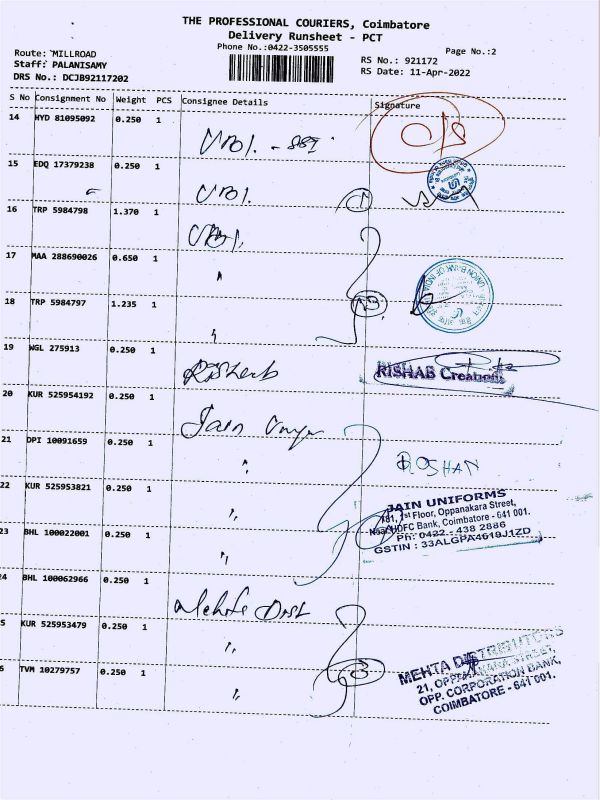 THE PROFESSIONAL COURIERS, Coimbatore
Delivery Runsheet - PCT
Phone No.:0422-3505555
Page No.:2
Route: MILLROAD
Staff: PALANISAMY
DRS No.: DCJB92117202
RS No.: 921172
RS Date: 11-Apr-2022
S No Consignment No Weight PCS Consignee Details Signature
14 HYD 81095092 0.250 1
15 EDQ 17379238 0.250 1
16 TRP 5984798 1.370 1
17 MAA 288690026 0.650 1
UNION BANK OF INDIA
18 TRP 5984797 1.235 1
19 WGL 275913 0.250 1
RISHAB Creations
20 KUR 525954192 0.250 1
Jain
21 DPI 10091659 0.250 1
ROSHAN
22 KUR 525953821 0.250 1
JAIN UNIFORMS
481, 1st Floor, Oppanakara Street,
HDFC Bank, Coimbatore - 641 001.
Ph: 0422 - 438 2886
GSTIN : 33ALGPA4619J1ZD
23 BHL 100022001 0.250 1
24 BHL 100062966 0.250 1
Mehta Dist
5 KUR 525953479 0.250 1
6 TVM 10279757 0.250 1
MEHTA DISTRIBUTORS
21, OPPANAKARA STREET,
OPP. CORPORATION BANK,
COIMBATORE - 641 001.